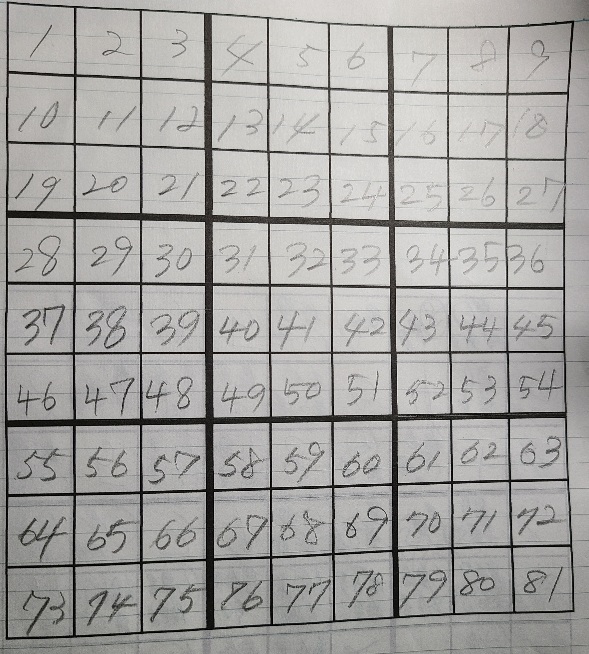 1 2 3 4 5 6 7 8 9
10 11 12 13 14 15 16 17 18
19 20 21 22 23 24 25 26 27
28 29 30 31 32 33 34 35 36
37 38 39 40 41 42 43 44 45
46 47 48 49 50 51 52 53 54
55 56 57 58 59 60 61 62 63
64 65 66 67 68 69 70 71 72
73 74 75 76 77 78 79 80 81